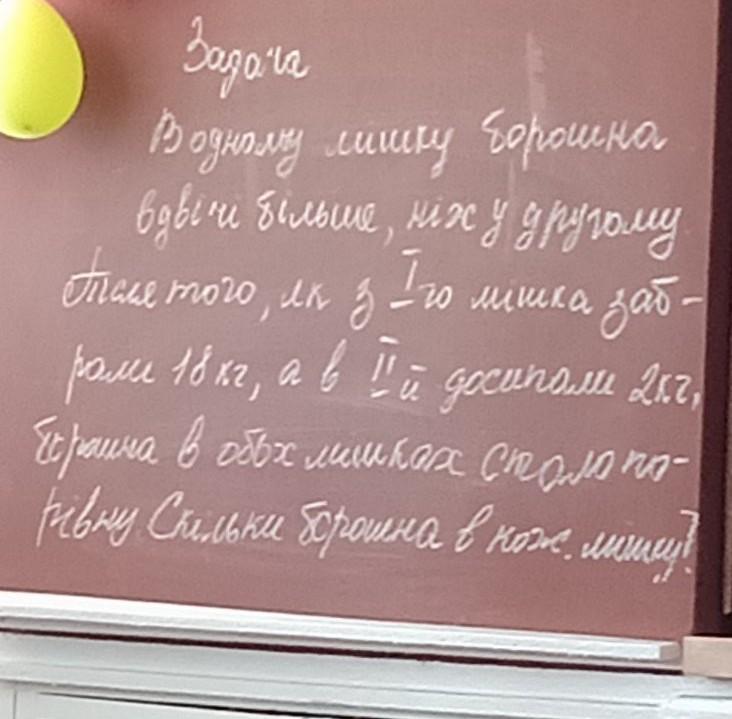 Задача
В одному мішку борошна
вдвічі більше, ніж у другому
Після того, як з I-го мішка заб-
рали 18 кг, а в II-й досипали 2кг,
борошна в обох мішках стало по-
рівну. Скільки борошна в кож. мішку?